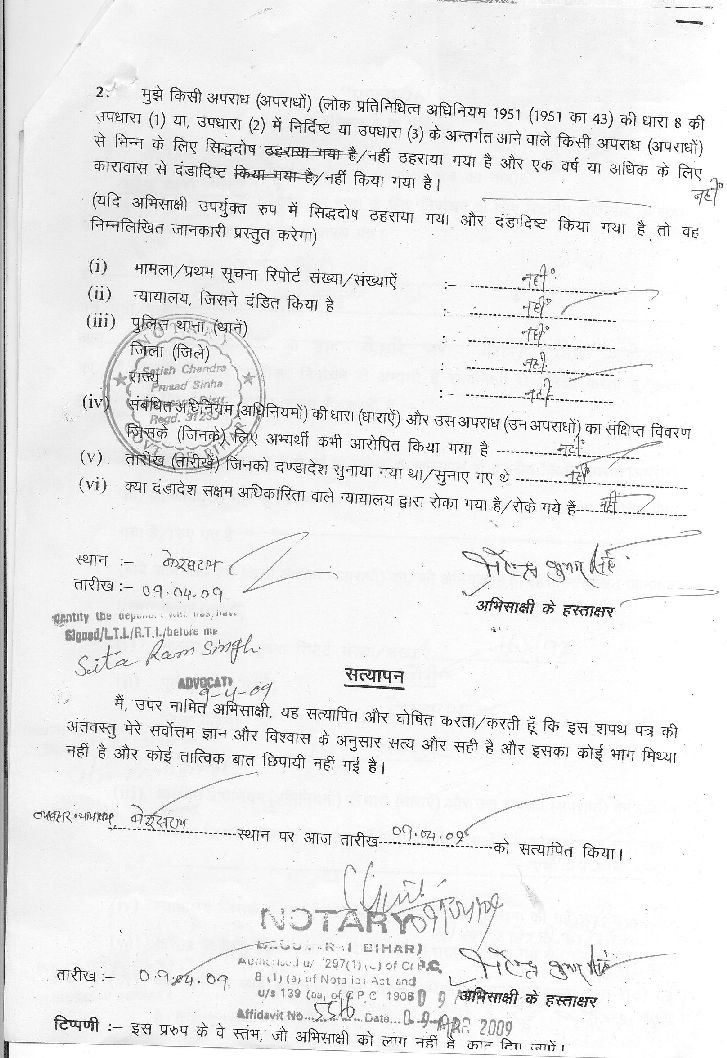 2. मुझे किसी अपराध (अपराधों) (लोक प्रतिनिधित्व अधिनियम 1951 (1951 का 43) की धारा 8 की
उपधारा (1) या, उपधारा (2) में निर्दिष्ट या उपधारा (3) के अन्तर्गत आने वाले किसी अपराध (अपराधों)
से भिन्न के लिए सिद्धदोष ठहराया गया है/नहीं ठहराया गया है और एक वर्ष या अधिक के लिए
कारावास से दंडादिष्ट किया गया है/नहीं किया गया है।
नहीं
(यदि अभिसाक्षी उपर्युक्त रुप में सिद्धदोष ठहराया गया और दंडादिष्ट किया गया है, तो वह
निम्नलिखित जानकारी प्रस्तुत करेगा)
(i) मामला/प्रथम सूचना रिपोर्ट संख्या/संख्याऐं :- नहीं
(ii) न्यायालय, जिसने दंडित किया है :- नहीं
(iii) पुलिस थाना (थानें) :- नहीं
जिला (जिले) :- नहीं
राज्य :- नहीं
Satish Chandra
Prasad Sinha
Regd.
(iv) संबंधित अधिनियम (अधिनियमों) की धारा (धाराऐं) और उस अपराध (उन अपराधों) का संक्षिप्त विवरण
जिसके (जिनके) लिए अभ्यर्थी कभी आरोपित किया गया है नहीं
(v) तारीख (तारीखें) जिनको दण्डादेश सुनाया गया था/सुनाए गए थे नहीं
(vi) क्या दंडादेश सक्षम अधिकारिता वाले न्यायालय द्वारा रोका गया है/रोके गये हैं नहीं
स्थान :- बेगूसराय
तारीख :- 09.04.09
अभिसाक्षी के हस्ताक्षर
Signed/L.T.I./R.T.I./before me
Sita Ram Singh
ADVOCATE
9-4-09
सत्यापन
मैं, उपर नामित अभिसाक्षी, यह सत्यापित और घोषित करता/करती हूँ कि इस शपथ पत्र की
अंतवस्तु मेरे सर्वोत्तम ज्ञान और विश्वास के अनुसार सत्य और सही है और इसका कोई भाग मिथ्या
नहीं है और कोई तात्विक बात छिपायी नहीं गई है।
बेगूसराय स्थान पर आज तारीख 09.04.09 को सत्यापित किया।
NOTARY
BEGUSARAI BIHAR)
Authorised u/ 297(1) (c) of Cr P.C.
8 (1) (a) of Notaries Act and
u/s 139 (aa) of C.P.C 1908
तारीख :- 09.04.09
अभिसाक्षी के हस्ताक्षर
Affidavit No. Date 09 APR 2009
टिप्पणी :- इस प्ररुप के वे स्तंभ, जो अभिसाक्षी को लागु नहीं है, काट दिए जाऐं।